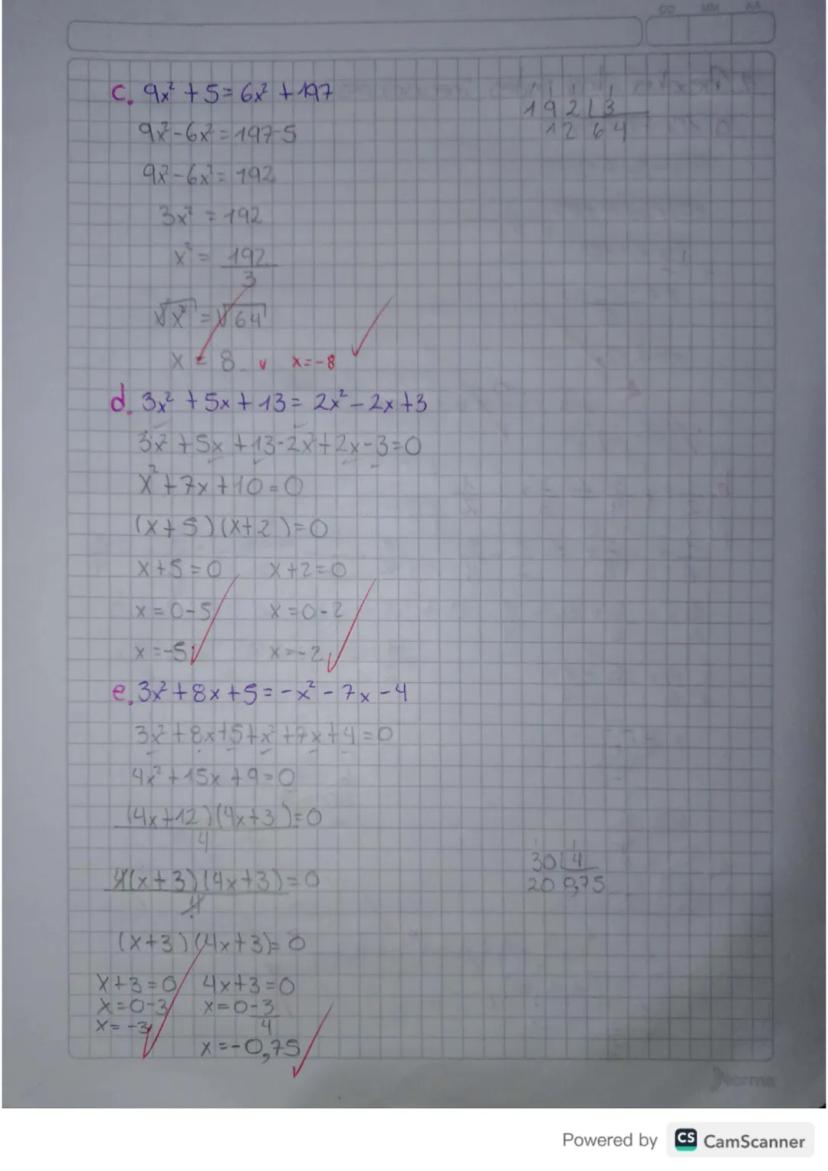 DD MM AA
c. 9x² + 5 = 6x² + 197
192 | 3
12 64
9x² - 6x² = 197-5
9x² - 6x² = 192
3x² = 192
x² = 192/3
√x² = √64
x = 8 v x = -8
d. 3x² + 5x + 13 = 2x² - 2x + 3
3x² + 5x + 13 - 2x² + 2x - 3 = 0
x² + 7x + 10 = 0
(x + 5)(x + 2) = 0
x + 5 = 0 x + 2 = 0
x = 0 - 5 x = 0 - 2
x = -5 x = -2
e. 3x² + 8x + 5 = -x² - 7x - 4
3x² + 8x + 5 + x² + 7x + 4 = 0
4x² + 15x + 9 = 0
(4x + 12)(4x + 3)/4 = 0
30 | 4
20 0,75
4(x + 3)(4x + 3)/4 = 0
(x + 3)(4x + 3) = 0
x + 3 = 0 4x + 3 = 0
x = 0 - 3 x = 0 - 3/4
x = -3
x = -0,75
Norma
Powered by CS CamScanner